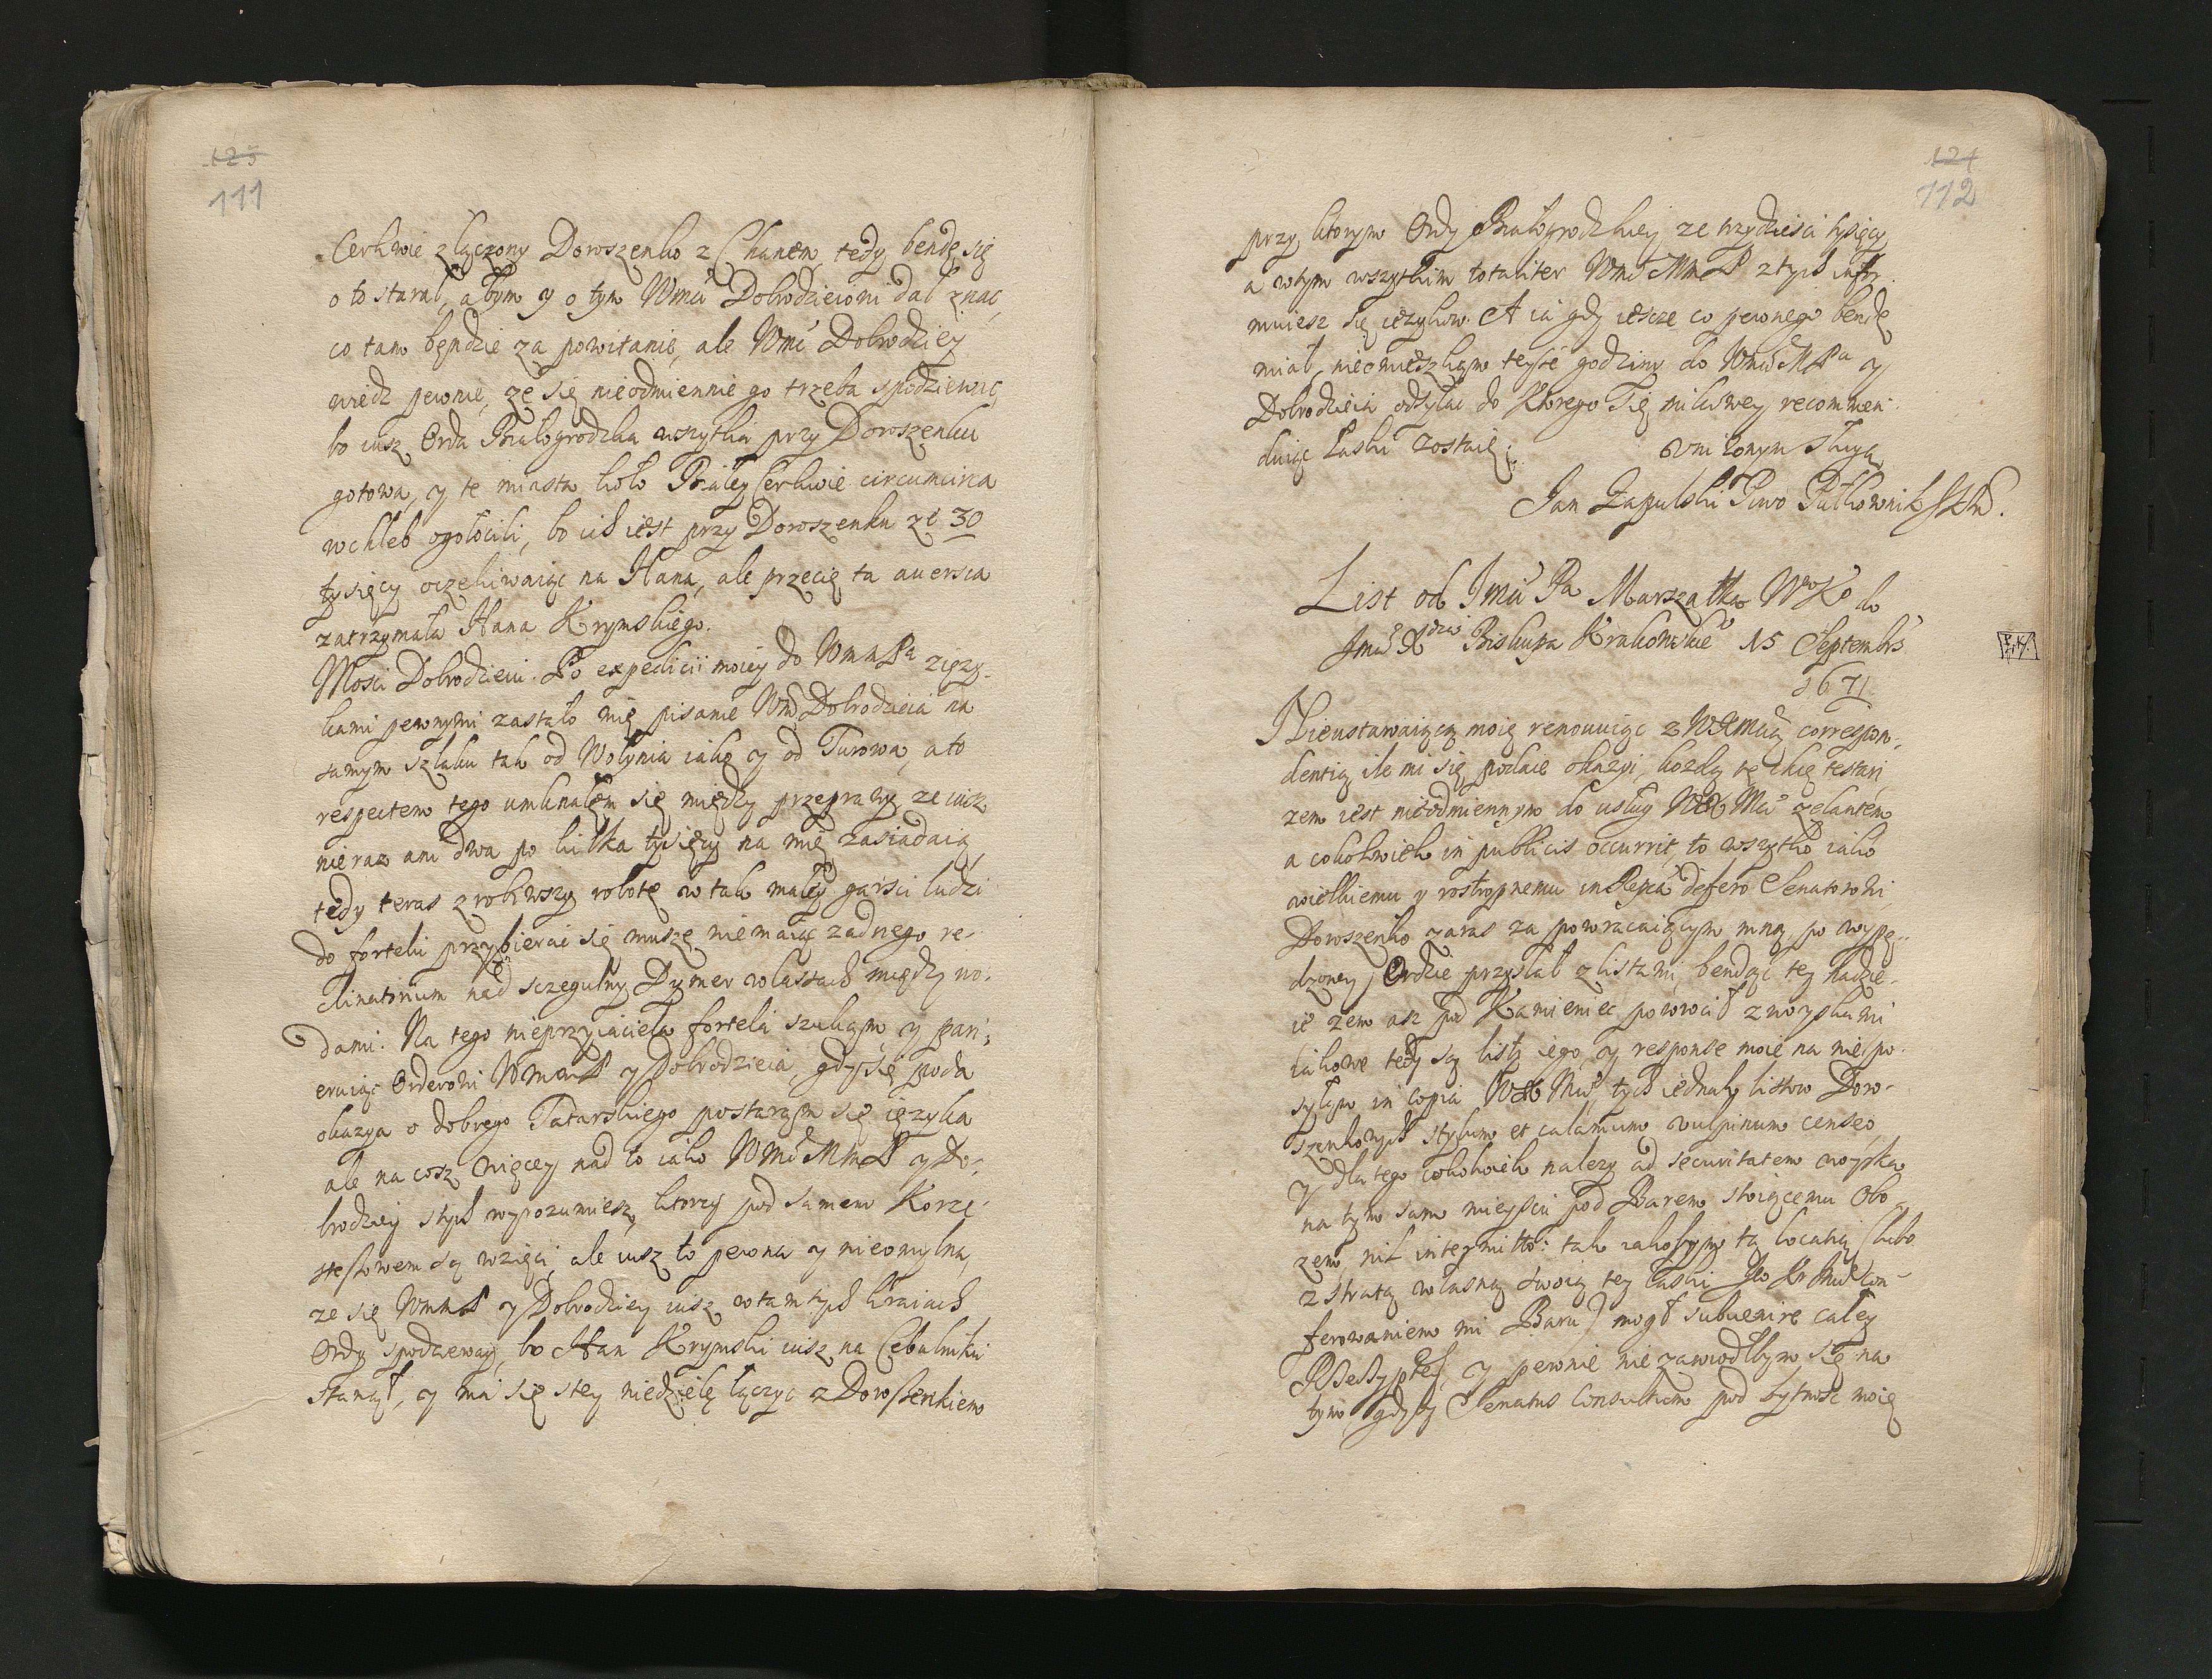 123
111
Cerkwie złączony Doroszenko z Chanem tedy bende się
o to starał, abym y o tym Wmći Dobrodzieiowi dał znać,
co tam będzie za powitanie, ale Wmć Dobrodziey
wiedz pewnie, ze się nieodmiennie go trzeba spodziewać
bo iusz Orda Białogrodzka wszytka przy Doroszenku
gotowa, y te miasta koło Białey Cerkwie circumcirca
w chleb ogołocili, bo ich iest przy Doroszenku ze 30
tysięcy oczekiwaiąc na Hana, ale przecię ta auersia
zatrzymała Hana Krymskiego.
Mości Dobrodzieiu. Po expedicii moiey do WmMPa zięzy-
kami pewnymi zastało mię pisanie Wm Dobrodzieia na
samym szlaku tak od Wołynia iako y od Turowa, a to
respectem tego umknąłem się między przeprawy ze iusz
nie raz ani dwa po kilka tysięcy na mię zasiadaią
tedy teras zrobiwszy robotę w tak małey garści ludzi
do fortelu przybierać się muszę nie maiąc zadnego re-
clinatorium nad sczegulny Dymer w lassach między wo-
dami. Na tego nieprzyiaciela fortelu szukam, y pari-
eruiąc Orderowi WmMP y Dobrodzieia, gdy się poda
okazya o dobrego Tatarskiego postaram się ięzyka
ale na cosz więcey nad to iako Wmć MmP y Do-
brodziey z tych wyrozumiesz, ktorzy pod samem Korze-
stessowem są wzięci, ale iusz to pewna y nieomylna,
ze się WmMP y Dobrodziey iusz w tamtych kraiach
Ordy spodzieway, bo Han Krymski iusz na Cebulniku
stanął, y ma się stey niedziele łączyc z Dorossenkiem
124
112
przy ktorym Ordy Białogrodzkiey ze trzydziesci tysięcy
a wtym wszytkim totaliter Wmć MmP z tych infor-
muiesz się ięzykow. A ia gdy ieszcze co pewnego bende
miał, nieomieszkam teyże godziny do Wmć MPa y
Dobrodzieia odsyłac do Ktorego się miłościwey recommen-
duiąc Łaski zostaię:
Vnizonym sługą
Jan Zapulski Piwo Pułkownik JKM.
List od Jmći Pa Marszałka WKo do
Jmći Xdza Biskupa Krakowskie° 15 Septembris
1671
Nieustawaiącą moię renouuiąc z WXMcią correspon-
dentią ile mi się podaie okazyi, kozdą tę chcę testari
zem iest nieodmiennym do usług WX Mći zelantem
a cokolwiek in publicis occurrit, to wszytko iako
wielkiemu y rostropnemu in Repca defero Senatorowi,
Doroszenko zaras za powracaiącym mną, po wypę-
dzoney Ordzie przysłał z listami, bendąc tey nadzie-
ie zem asz pod Kamieniec powrocił z woyskami
iakowe tedy są listy iego, y response moie na nie po-
syłam in copia WX Mći, tych iednak listow Doro-
szenkowych stylum et calamum vulpinum censeo
y dla tego cokolwiek nalezy ad securitatem woyska
na tym sam mieyscu pod Barem stoiącemu Obo-
zem, nil intermitto: tak iakobym tą locatią (lubo
z stratą własną swoią tey łaski Jo Kr Mći con-
ferowaniem mi Baru) mogł subuenire całey
Rzeczyptey, y pewnie nie zawiodłbym się na
tym, gdyby Senatus Consultum pod bytność moię